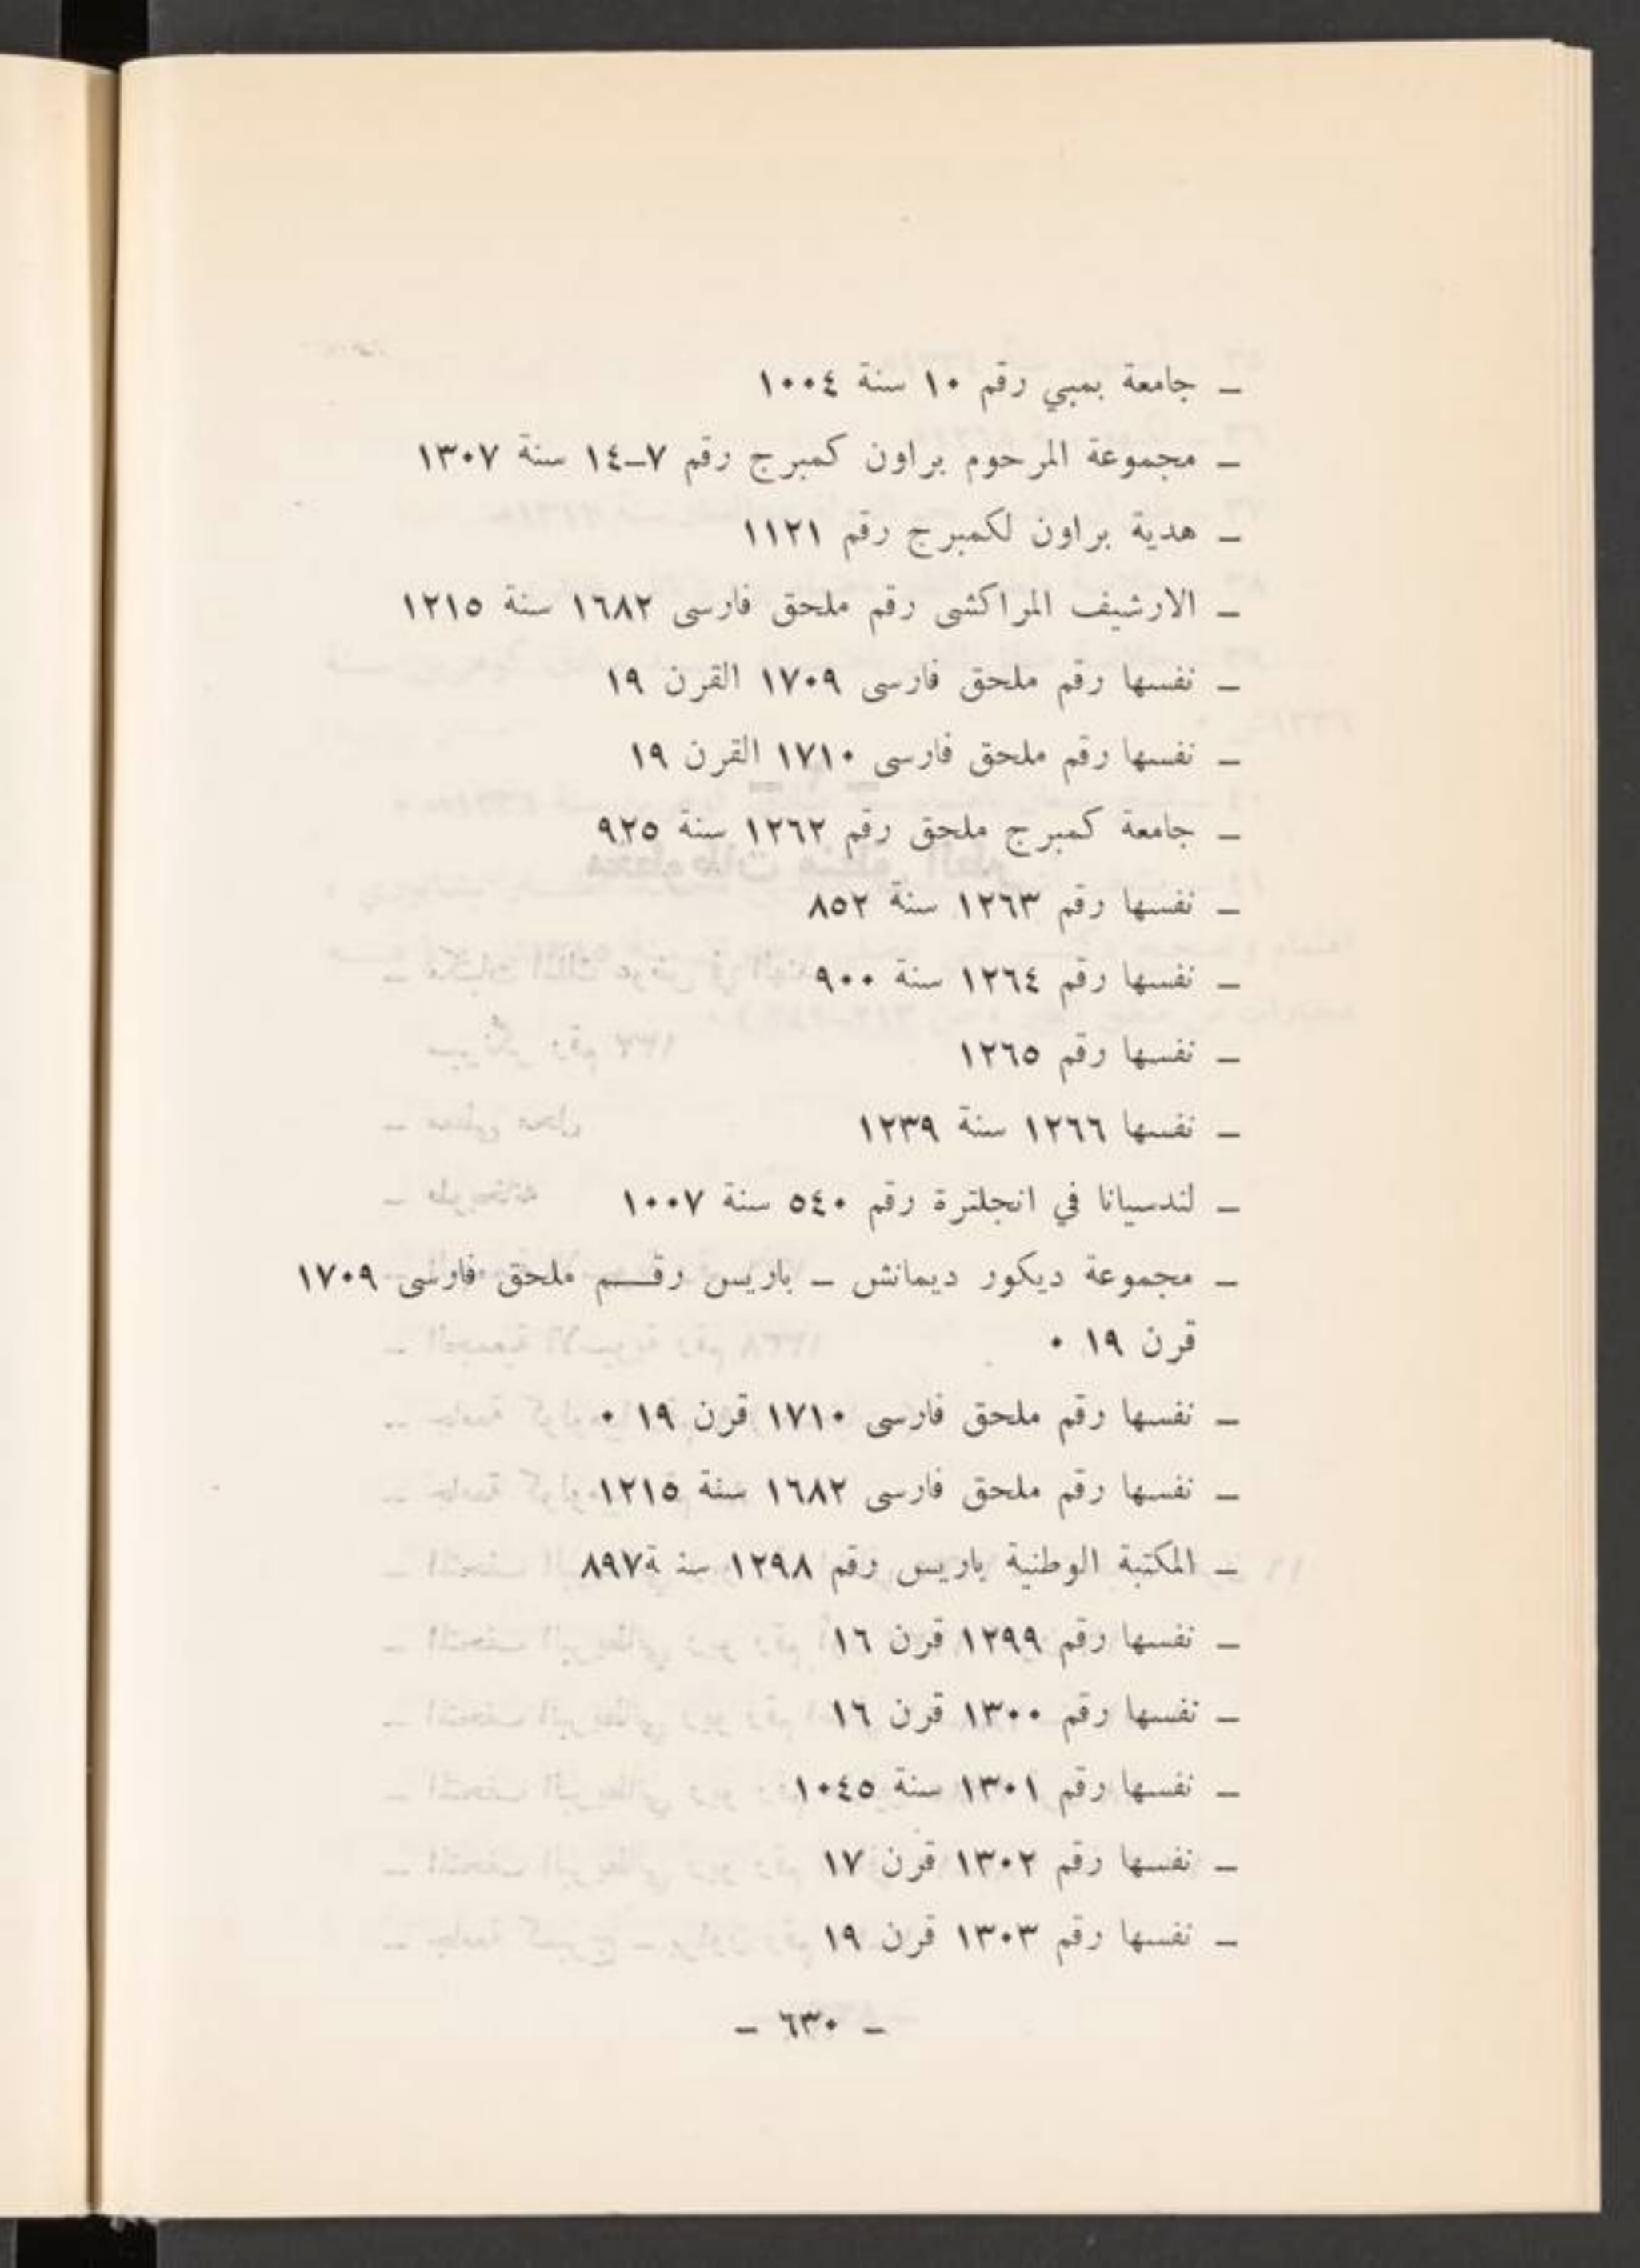 ـ جامعة بمبي رقم ١٠ سنة ١٠٠٤
ـ مجموعة المرحوم براون كمبرج رقم ٧ـ١٤ سنة ١٣٠٧
ـ هدية براون لكمبرج رقم ١١٢١
ـ الارشيف المراكشى رقم ملحق فارسى ١٦٨٢ سنة ١٢١٥
ـ نفسها رقم ملحق فارسى ١٧٠٩ القرن ١٩
ـ نفسها رقم ملحق فارسى ١٧١٠ القرن ١٩
ـ جامعة كمبرج ملحق رقم ١٢٦٢ سنة ٩٢٥
ـ نفسها رقم ١٢٦٣ سنة ٨٥٢
ـ نفسها رقم ١٢٦٤ سنة ٩٠٠
ـ نفسها رقم ١٢٦٥
ـ نفسها ١٢٦٦ سنة ١٢٣٩
ـ لندسيانا في انجلترة رقم ٥٤٠ سنة ١٠٠٧
ـ مجموعة ديكور ديمانش ـ باريس رقـــم ملحق فارسى ١٧٠٩
قرن ١٩ ٠
ـ نفسها رقم ملحق فارسى ١٧١٠ قرن ١٩ ٠
ـ نفسها رقم ملحق فارسى ١٦٨٢ سنة ١٢١٥
ـ المكتبة الوطنية باريس رقم ١٢٩٨ سنـ ة٨٩٧
ـ نفسها رقم ١٢٩٩ قرن ١٦
ـ نفسها رقم ١٣٠٠ قرن ١٦
ـ نفسها رقم ١٣٠١ سنة ١٠٤٥
ـ نفسها رقم ١٣٠٢ قرن ١٧
ـ نفسها رقم ١٣٠٣ قرن ١٩
ـ ٦٣٠ ـ